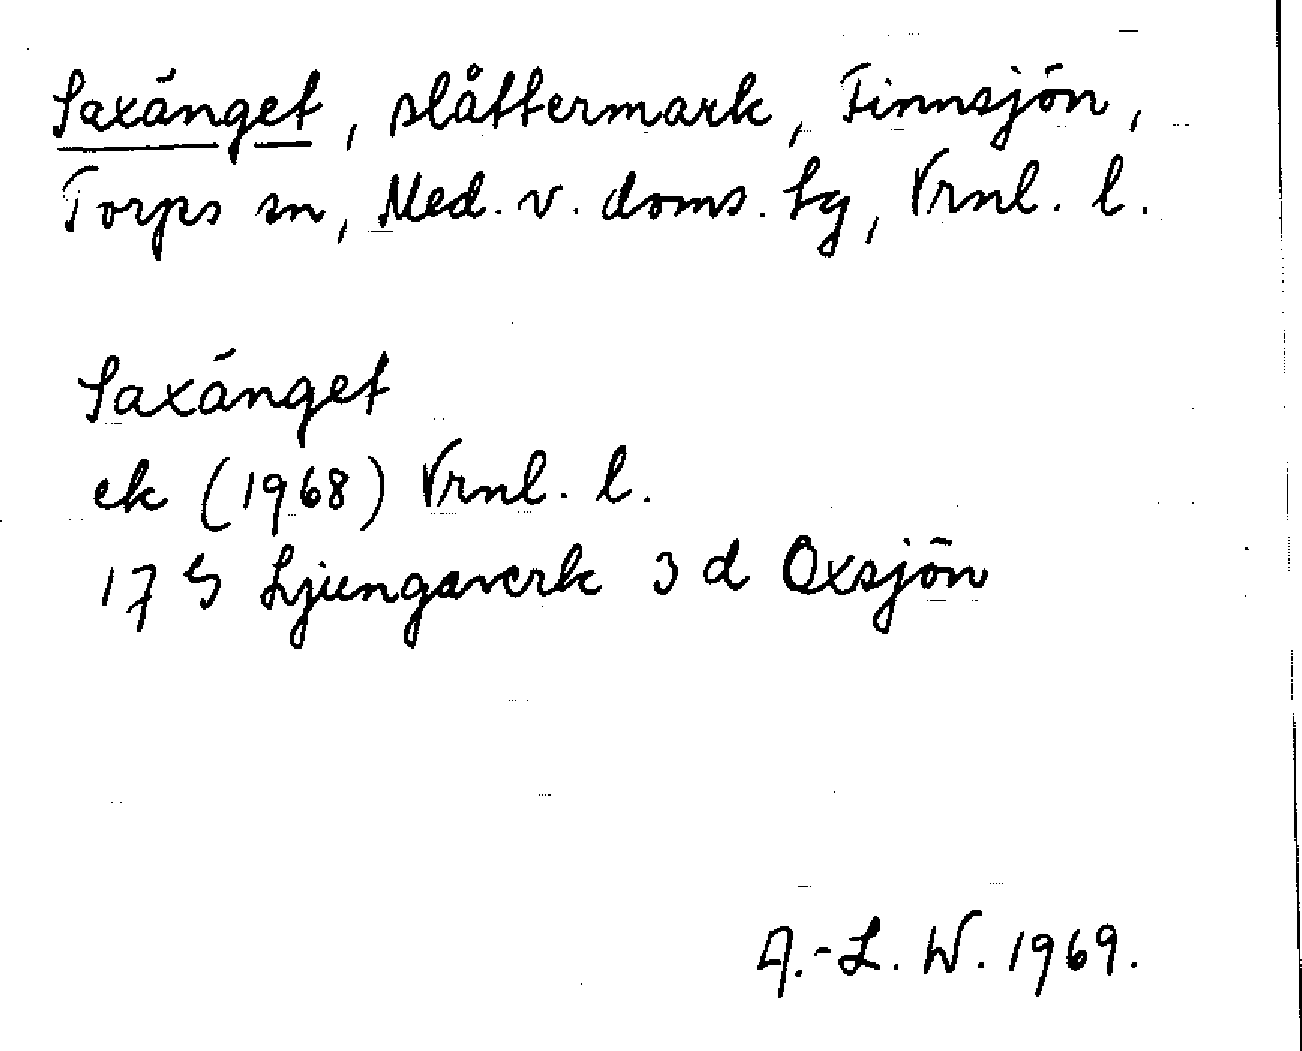 Saxänget, slåttermark, Finnsjön,
Torps sn, Med. v. doms. tg, Vrnl. l.
Saxänget
ek (1968) Vrnl. l.
17 G Ljungaverk 3 d Oxsjön
A.-L. W. 1969.